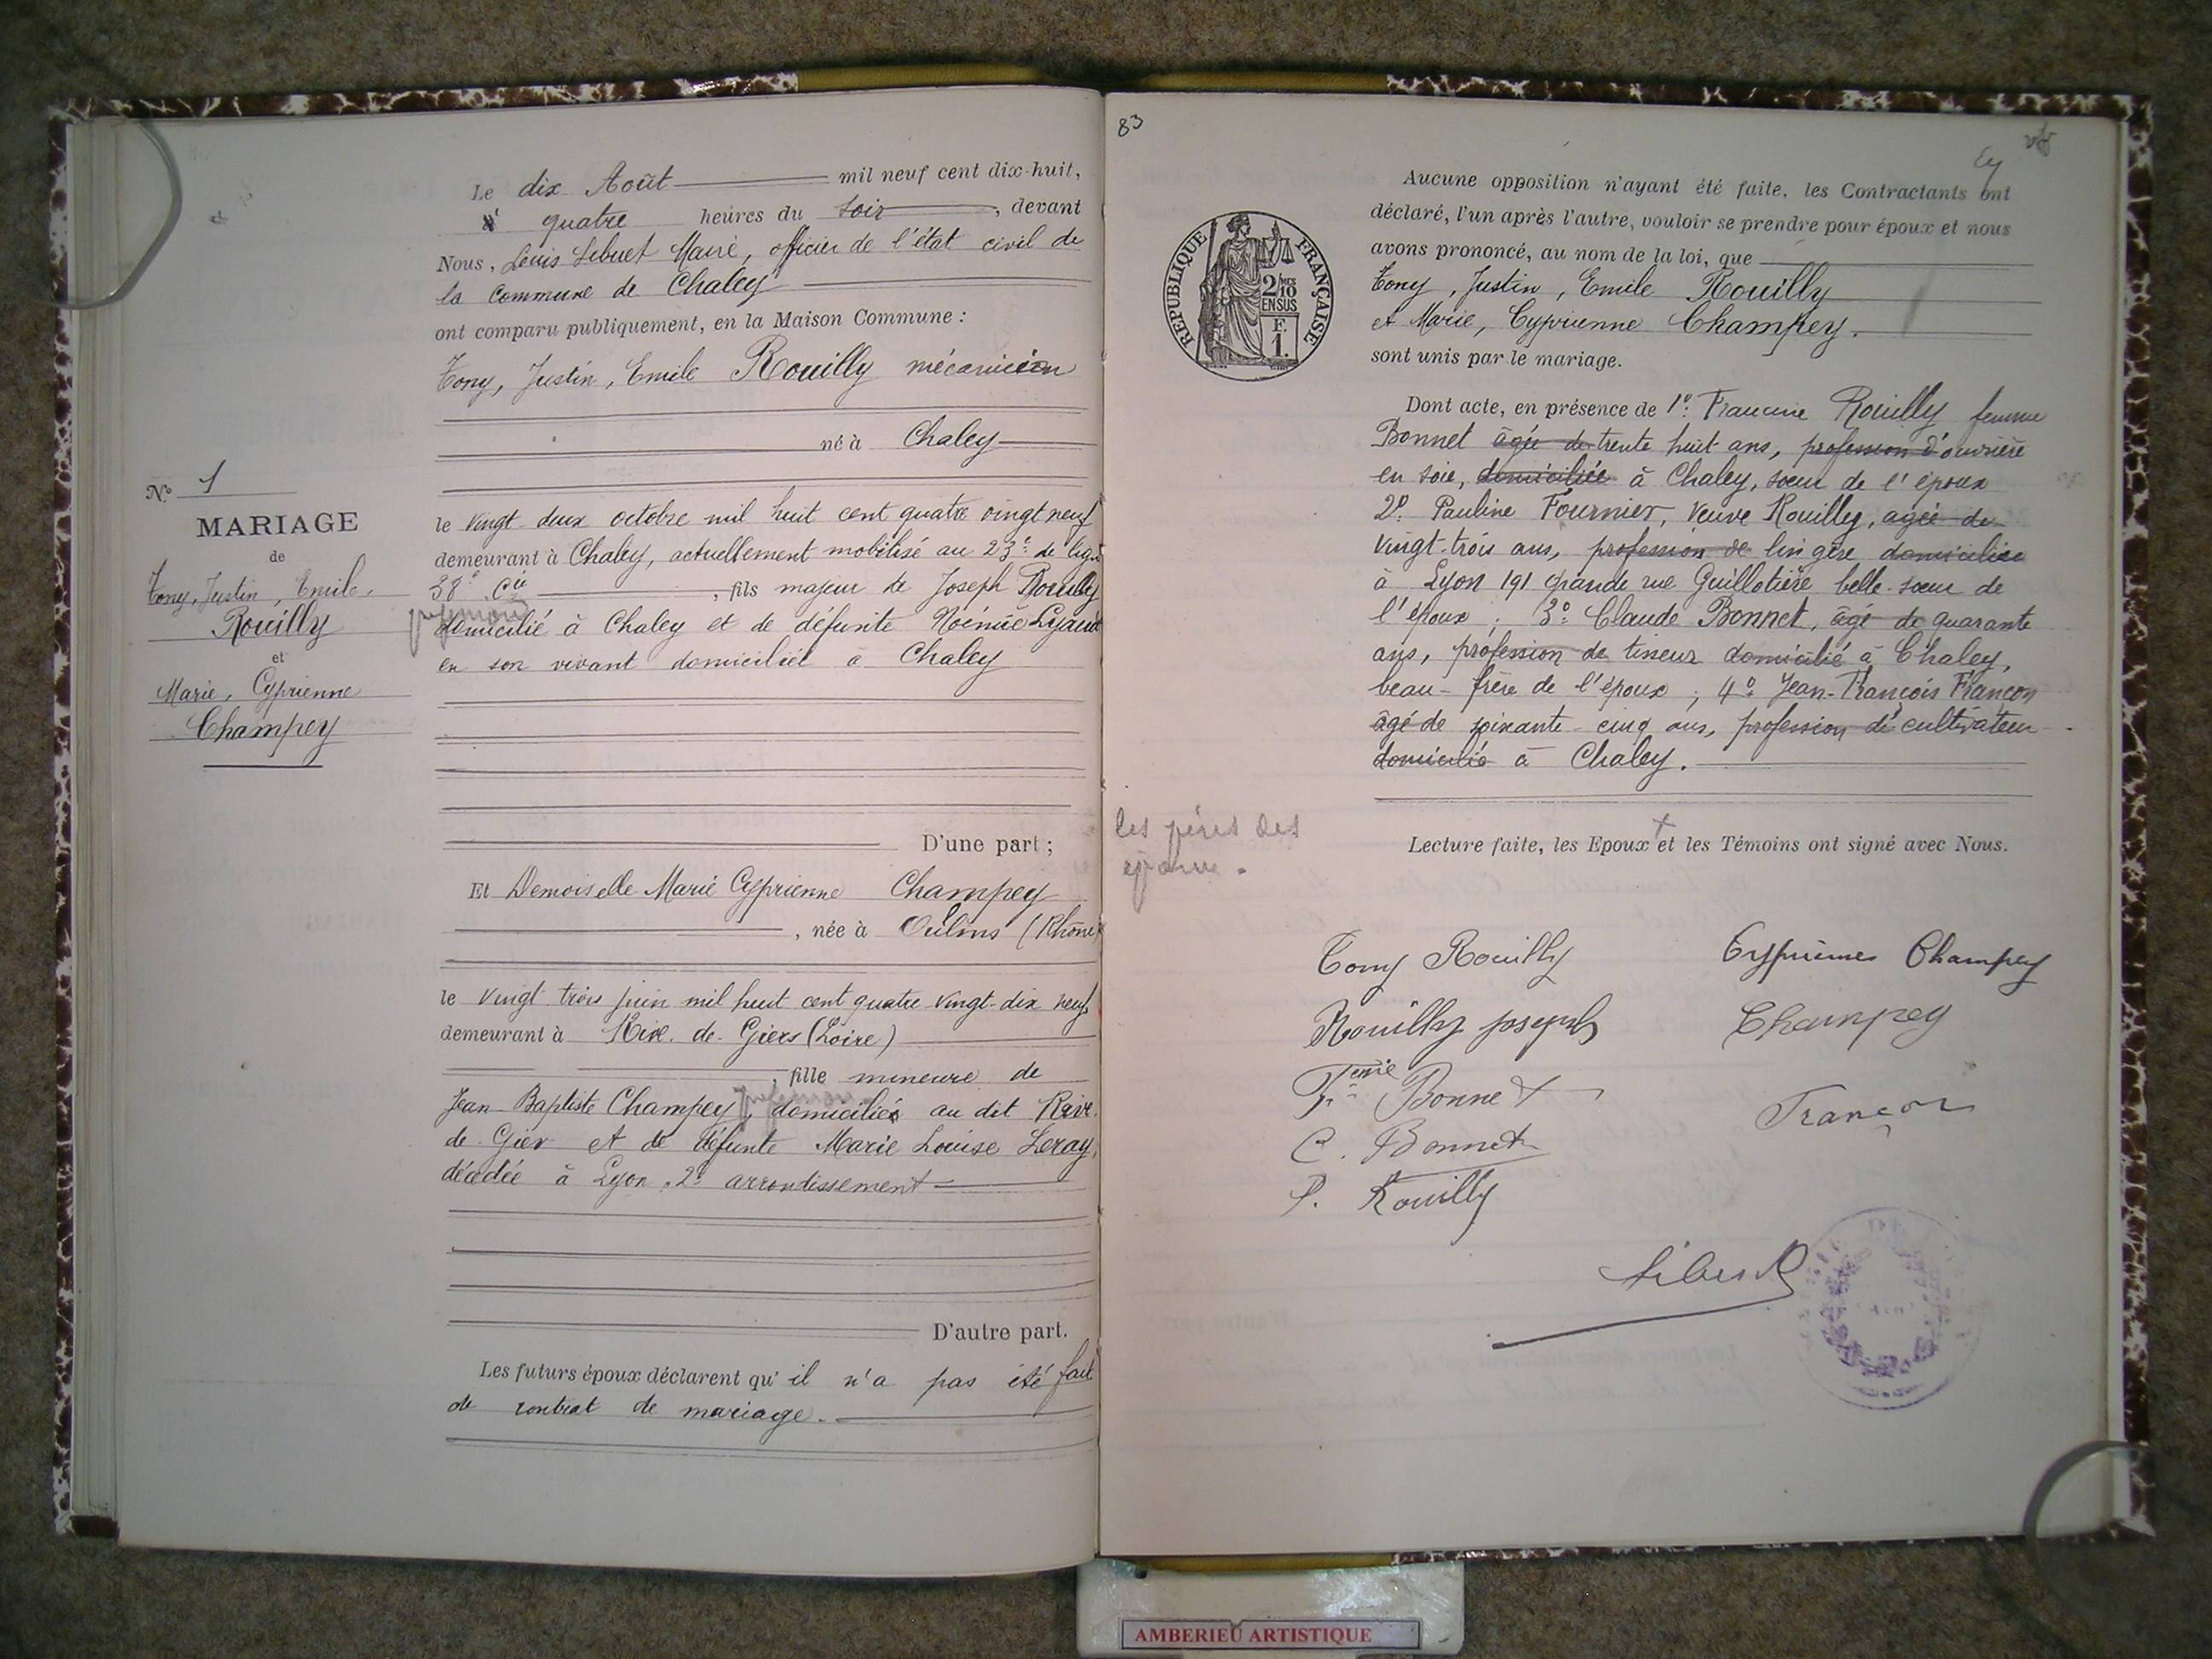 Le dix Août mil neuf cent dix-huit,
à quatre heures du soir, devant
Nous, Louis Sibuet Maire, officier de l'état civil de
la Commune de Chaley
ont comparu publiquement, en la Maison Commune :
Tony, Justin, Emile Rouilly mécanicien
né à Chaley
le vingt deux octobre mil huit cent quatre vingt neuf
demeurant à Chaley, actuellement mobilisé au 23e de ligne
38e Cie, fils majeur de Joseph Rouilly
profession
domicilié à Chaley et de défunte Noémie
en son vivant domiciliée à Chaley
D'une part ;
Et Demoiselle Marie Cyprienne Champey
, née à Oulins (Rhône)
le vingt trois juin mil huit cent quatre vingt-dix neuf
demeurant à Rive. de. Giers (Loire)
, fille mineure de
profession
Jean-Baptiste Champey, domicilié au dit Rive.
de Gier et de défunte Marie Louise Leray,
décédée à Lyon, 2e arrondissement
D'autre part.
Les futurs époux déclarent qu'il n'a pas été fait
de contrat de mariage.
N° 1
MARIAGE
de
Tony, Justin, Emile.
Rouilly
et
Marie, Cyprienne
Champey
83
RÉPUBLIQUE FRANÇAISE
2/10MES
EN SUS
F.
1.
Aucune opposition n'ayant été faite, les Contractants ont
déclaré, l'un après l'autre, vouloir se prendre pour époux et nous
avons prononcé, au nom de la loi, que
Tony, Justin, Emile Rouilly
et Marie, Cyprienne Champey.
sont unis par le mariage.
Dont acte, en présence de 1°: Francine Rouilly femme
Bonnet âgée de trente huit ans, profession d'ouvrière
en soie, domiciliée à Chaley, sœur de l'époux
2°: Pauline Fournier, Veuve Rouilly, agée de
vingt-trois ans, profession de lingère domiciliée
à Lyon 191 grande rue Guillotière belle-sœur de
l'époux ; 3°: Claude Bonnet, âgé de quarante
ans, profession de tisseur domicilié à Chaley,
beau-frère de l'époux ; 4°: Jean-François Françon
âgé de soixante-cinq ans, profession de cultivateur
domicilié à Chaley.
les pères des
époux.
Lecture faite, les Epoux et les Témoins ont signé avec Nous.
Tony Rouilly
Cyprienne Champey
Rouilly joseph
Champey
Bonnet
Françon
C. Bonnet
P. Rouilly
Sibuet
AMBERIEU ARTISTIQUE